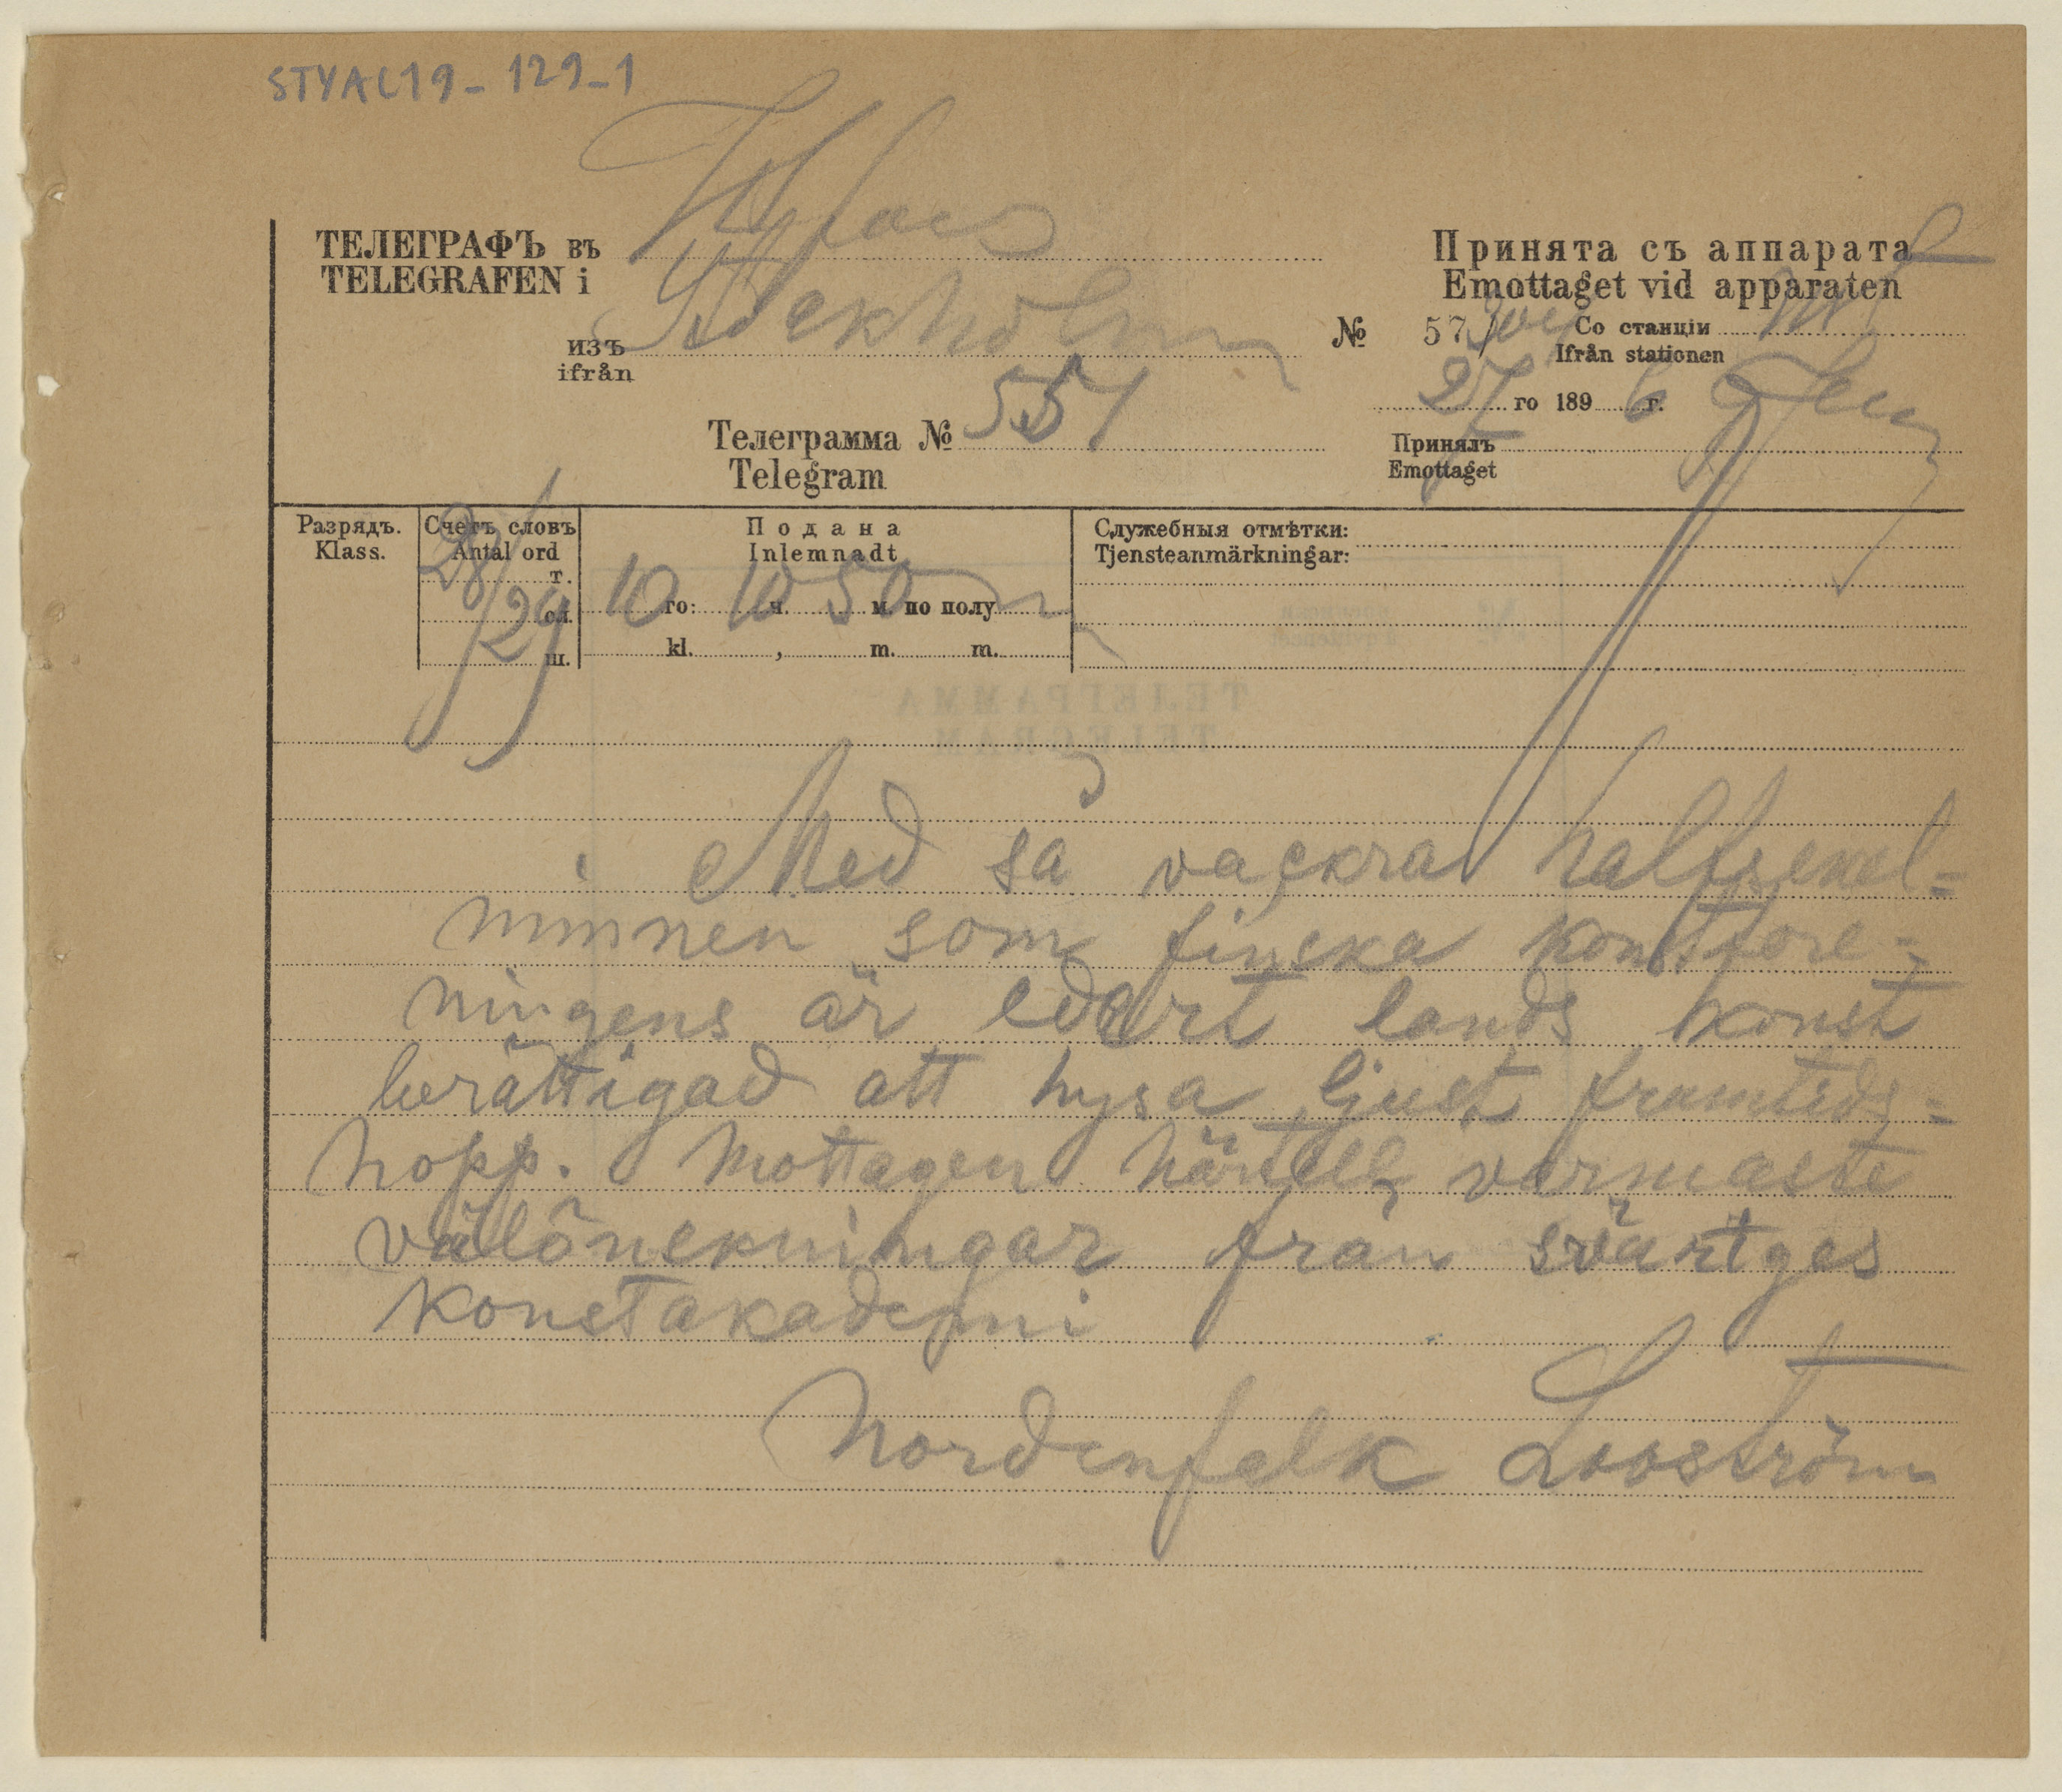 STYAL19-129-1
Hfors
ТЕЛЕГРАФЪ въ
TELEGRAFEN i
Stockholm
изъ
ifrån
Принята съ аппарата
Emottaget vid apparaten
№ 57/ Со станціи
Ifrån stationen
27 го 1896 г.
Телеграмма № 551
Telegram
Принялъ
Emottaget
Разрядъ.
Klass.
Счетъ словъ
Antal ord
28/29
т.
сл.
ш.
Подана
Inlemnadt
10 го: 10 ч. 50 м. по полу
kl. , m. m.
Служебныя отмѣтки:
Tjensteanmärkningar:
Med så vackra halfsekel-
minnen som finska konstföre-
ningens är edert lands konst
berättigad att hysa ljust framtids-
hopp. Mottagen härtill varmaste
välönskningar från svärtges
konstakademi
Nordenfalk Looström